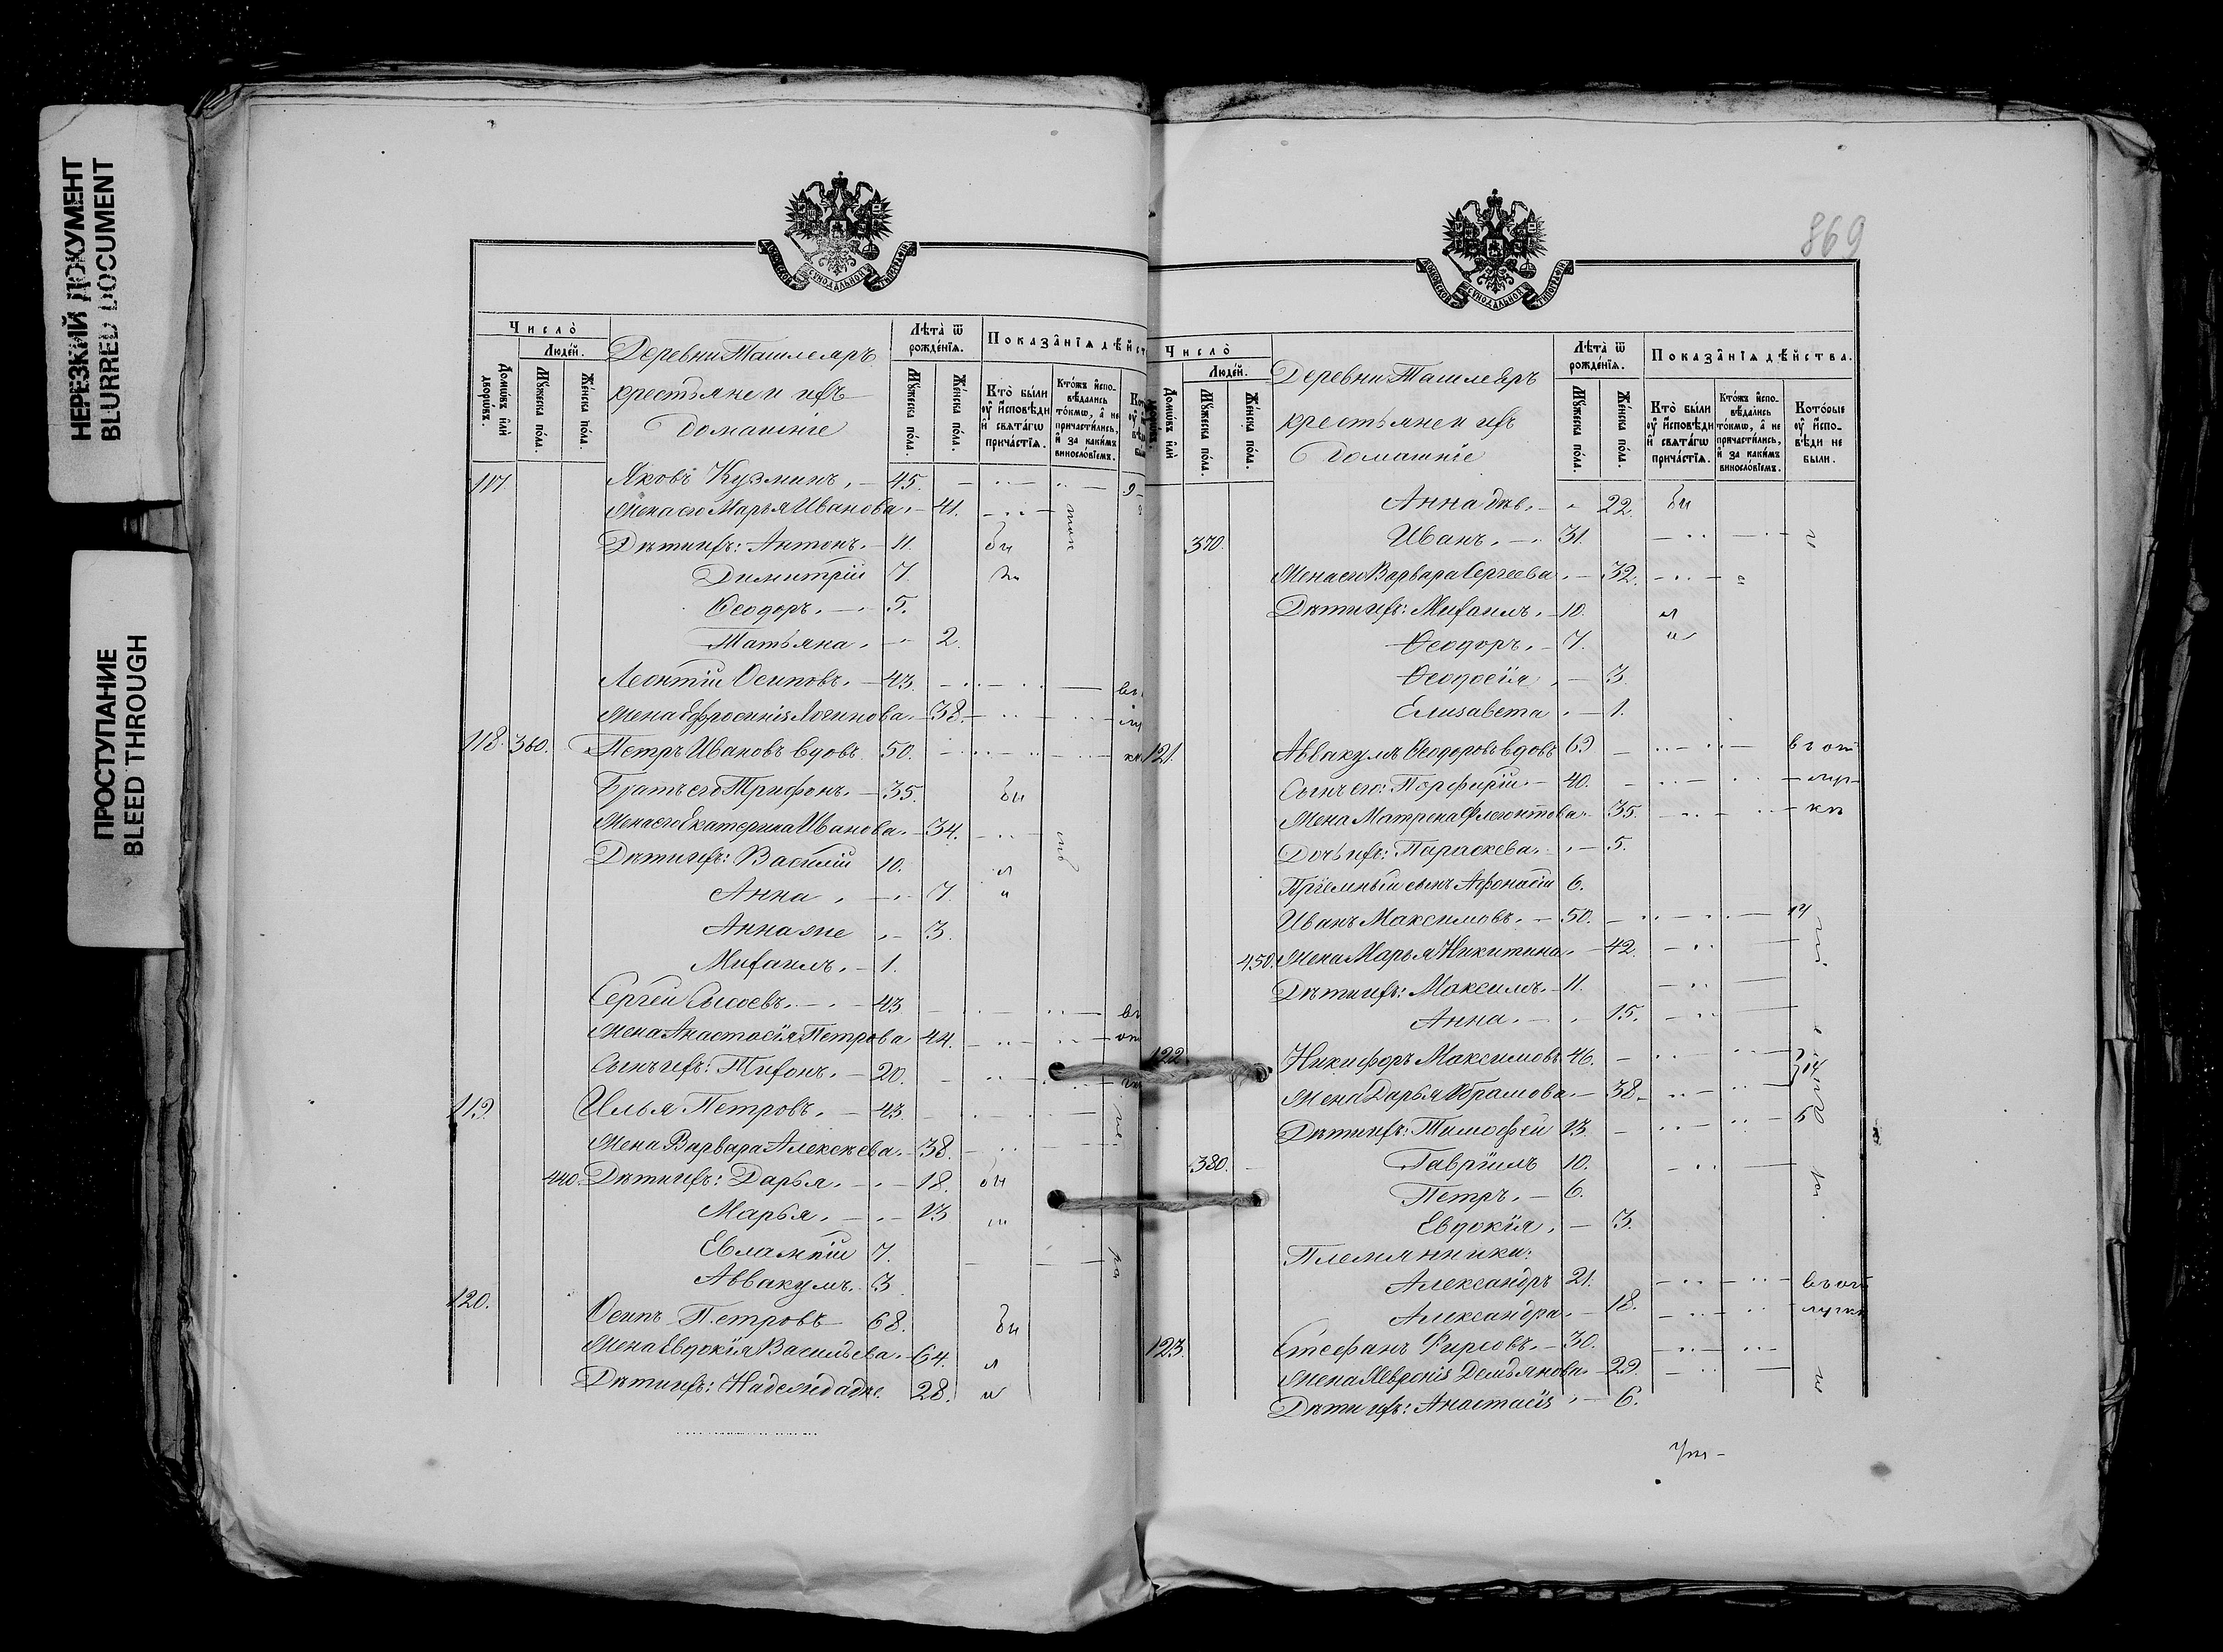 НЕРЕЗКИЙ ДОКУМЕНТ
BLURRED DOCUMENT
ПРОСТУПАНИЕ
BLEED THROUGH
МОСКОВСКОЙ СѴНОДАЛЬНОЙ ТИПОГРАФІИ
Число̀
Люде́й.
Домѡ́въ и҆лѝ дворѡ́въ.
Мꙋ́жеска по́ла.
Же́нска по́ла.
Деревни Ташлеяръ
крестьяне и ихъ
домашніе
Лѣта̀ ѿ рожде́нїѧ.
Мꙋ́жеска по́ла.
Же́нска по́ла.
Показа̑нїѧ дѣ́йст
Кто̀ бы́ли ᲂу҆ и҆спо́вѣди и҆ свѧта́гѡ прича́стїѧ.
Кто́жъ и҆спо-вѣ́дались то́кмѡ, а҆ не причасти́лись, и҆ за каки́мъ винослѡ́вїемъ.
117. Яковъ Кузминъ. — 45.
Жена его Марья Иванова. — 41.
Дѣти ихъ: Антонъ. — 11. би
Димитрій 7.
Ѳеодоръ. — 5.
Татьяна. — 2.
Леонтій Осиповъ. — 43.
Жена Ефросинія Логинова. — 38.
118. 360. Петръ Ивановъ вдовъ. 50.
Братъ его Трифонъ. — 35. би
Жена его Екатерина Иванова. — 34.
Дѣти ихъ: Василій 10. л
Анна. — 7. и
Анна же — 3.
Михаилъ. — 1.
Сергей Сысоевъ. — 43
Жена Анастасія Петрова 44.
Сынъ ихъ: Тихонъ. — 20.
119. Илья Петровъ. — 43
Жена Варвара Алексѣева. — 38.
440. Дѣти ихъ: Дарья. — 18. би
Марья. — 13
Евлампій 7.
Аввакумъ. 3
120. Осипъ Петровъ 68. би
Жена Евдокія Васильева. — 64. л
Дѣти ихъ: Надежда дѣв. 28. и
869
МОСКОВСКОЙ СѴНОДАЛЬНОЙ ТИПОГРАФІИ
Число̀
Люде́й.
Домѡ́въ и҆лѝ дворѡ́въ.
Мꙋ́жеска по́ла.
Же́нска по́ла.
Деревни Ташлеяръ
крестьяне и ихъ
домашніе
Лѣта̀ ѿ рожде́нїѧ.
Мꙋ́жеска по́ла.
Же́нска по́ла.
Показа̑нїѧ дѣ́йства.
Кто̀ бы́ли ᲂу҆ и҆спо́вѣди и҆ свѧта́гѡ прича́стїѧ.
Кто́жъ и҆спо-вѣ́дались то́кмѡ, а҆ не причасти́лись, и҆ за каки́мъ винослѡ́вїемъ.
Кото́рые ᲂу҆ и҆спо-вѣди не бы́ли.
Анна дѣв. — 22. би
370. Иванъ. — 31.
Жена его Варвара Сергеева. — 32.
Дѣти ихъ: Михаилъ. — 10. л
Ѳеодоръ. — 7. и
Ѳеодосія. — 3.
Елисавета. — 1.
121. Аввакумъ Ѳеодоровъ вдовъ 69 въ от
Сынъ его: Порфирій — 40. луч
Жена Матрена Флегонтова — 35. кѣ
Дочь ихъ: Параскева. — 5.
Пріемный сынъ Афонасій 6.
Иванъ Максимовъ. — 50.
450. Жена Марья Никитина. — 42.
Дѣти ихъ: Максимъ. — 11.
Анна. — 15.
122. Никифоръ Максимовъ 46.
Жена Дарья Абрамова. — 38.
Дѣти ихъ: Тимофей 13.
380. Гавріилъ 10.
Петръ. — 6.
Евдокія. — 3.
Племянники:
Александръ 21. въ от
Александра. — 18. лучкѣ
123. Стефанъ Фирсовъ. — 30.
Жена Хевронія Демьянова. — 29.
Дѣти ихъ: Анастасія — 6.